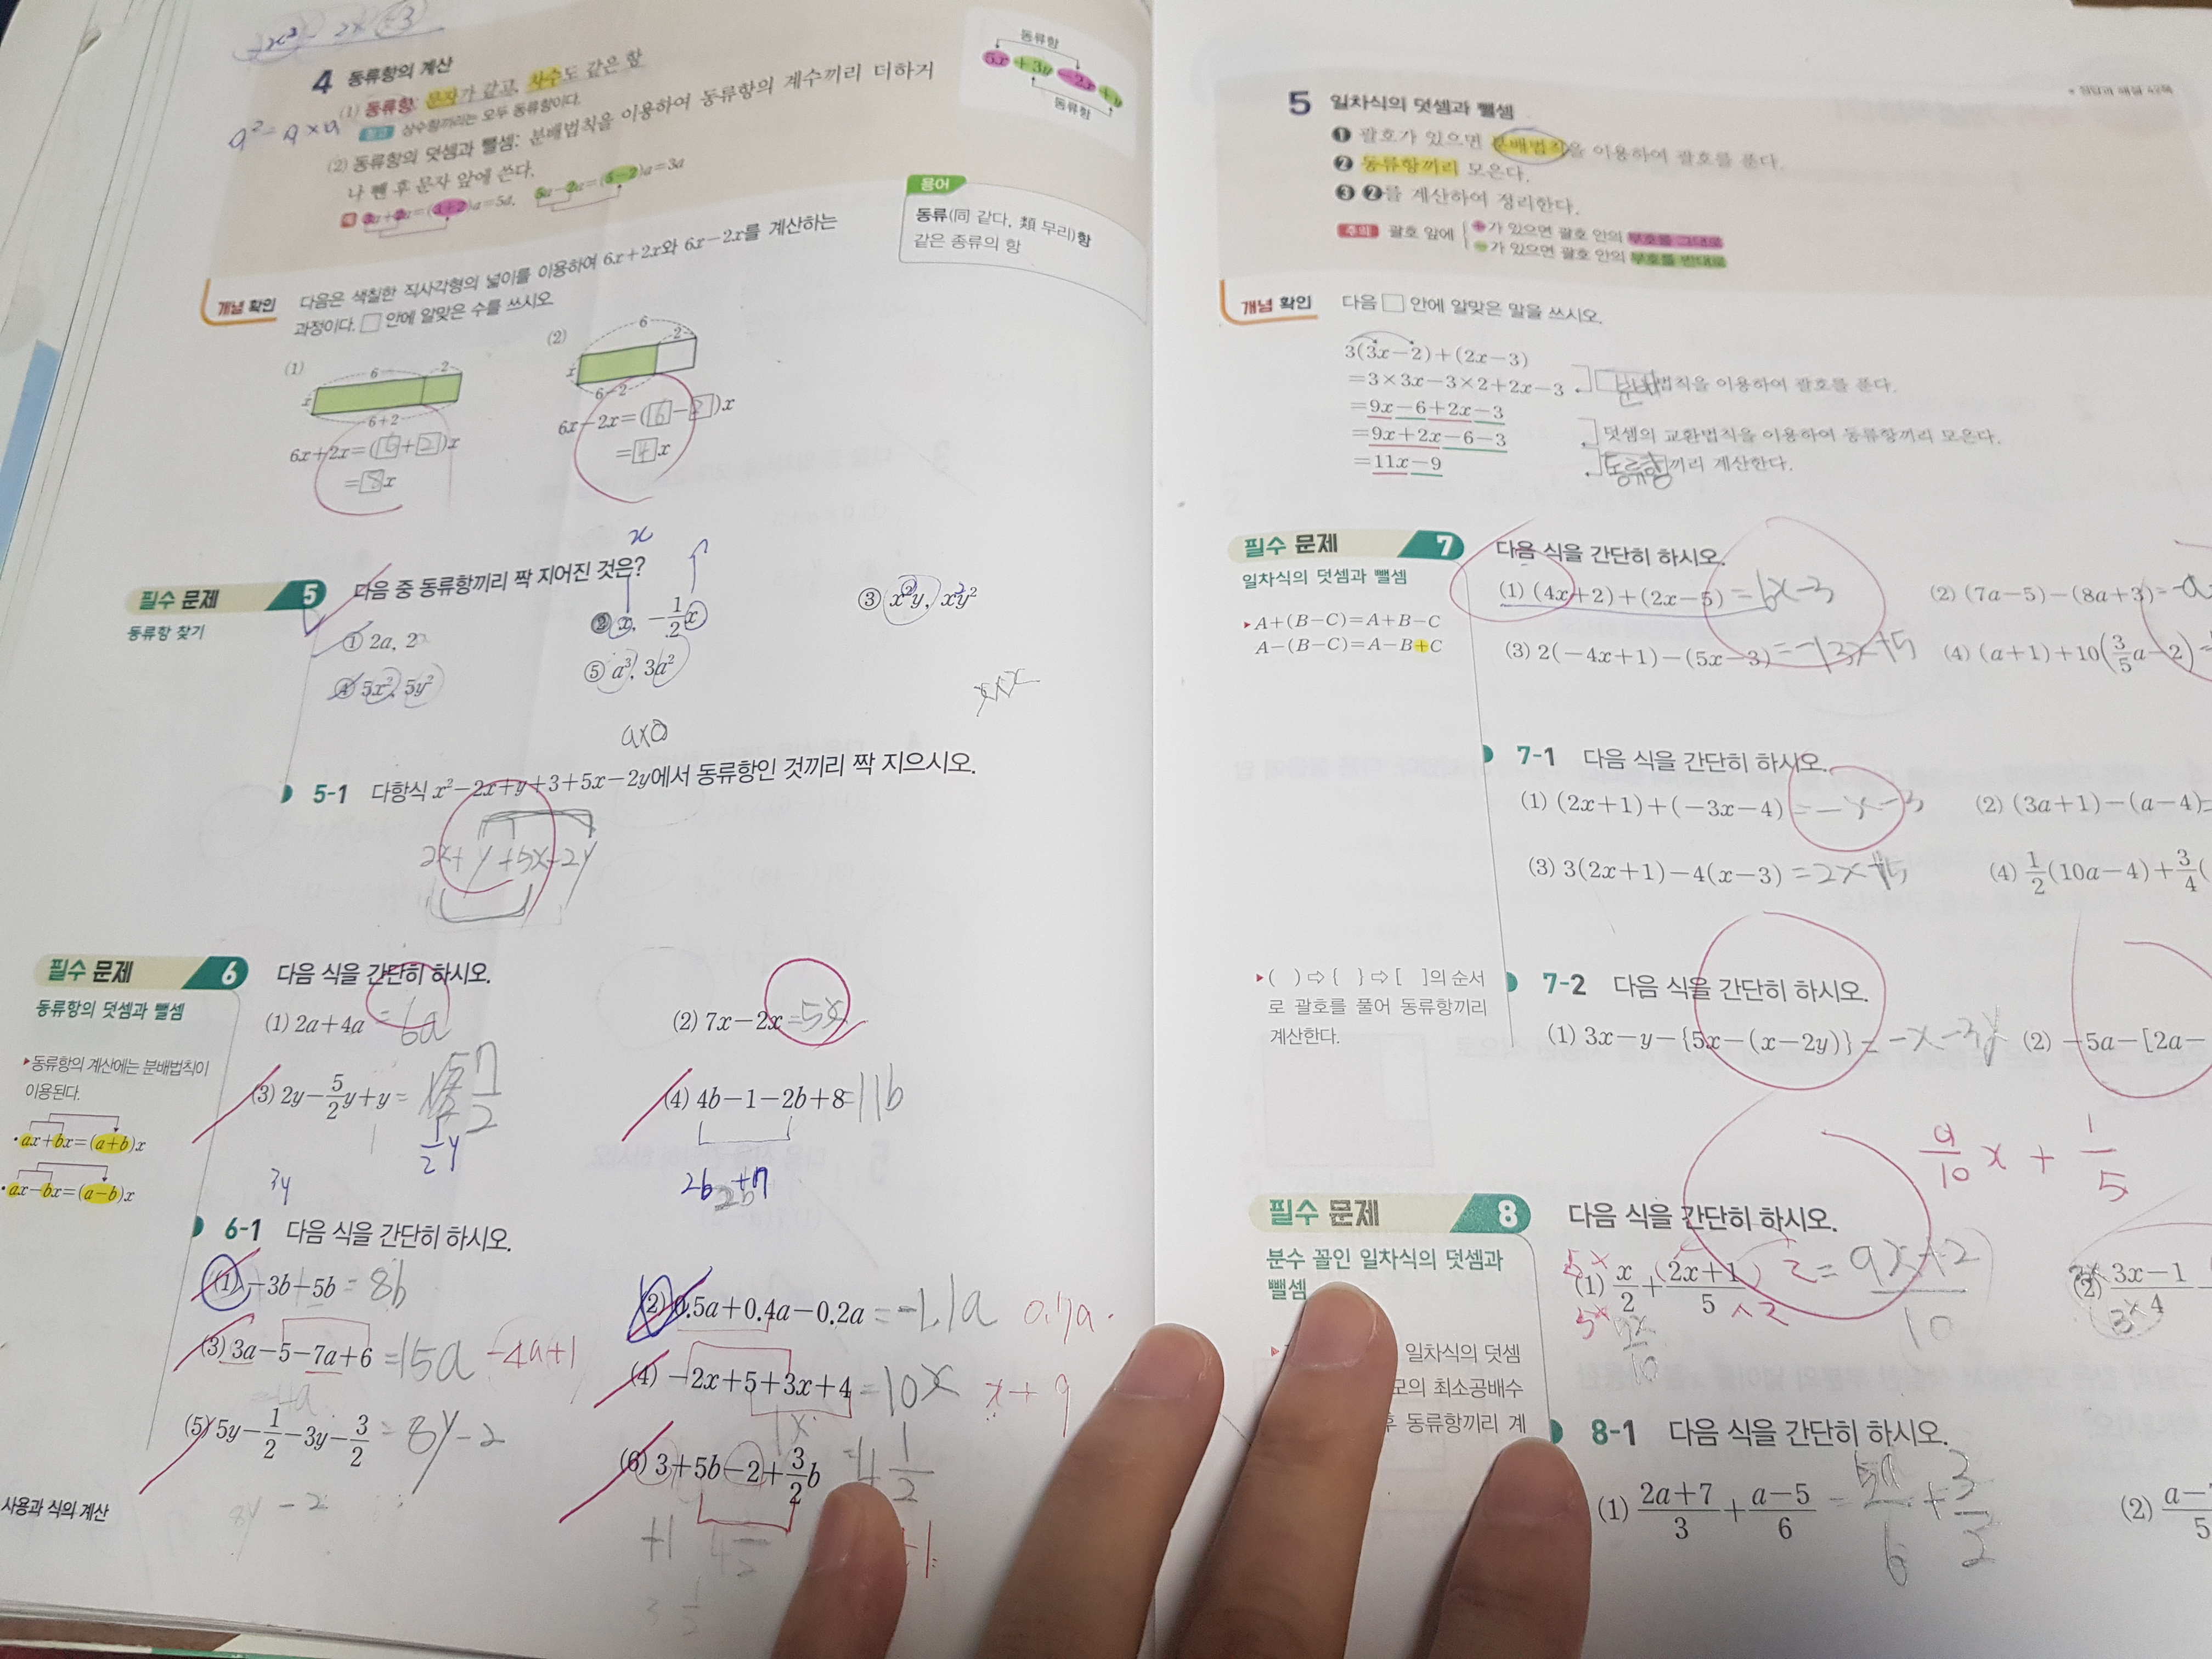 x² - 2x + 3
4 동류항의 계산
(1) 동류항: 문자가 같고, 차수도 같은 항
참고 상수항끼리는 모두 동류항이다.
a² = a × a
(2) 동류항의 덧셈과 뺄셈: 분배법칙을 이용하여 동류항의 계수끼리 더하거
나 뺀 후 문자 앞에 쓴다.
예 3a+2a=(3+2)a=5a, 5a-2a=(5-2)a=3a
동류항
5x+3y-2x+y
동류항
용어
동류(同 같다, 類 무리)항
같은 종류의 항
개념 확인 다음은 색칠한 직사각형의 넓이를 이용하여 6x+2x와 6x-2x를 계산하는
과정이다. □ 안에 알맞은 수를 쓰시오.
(1)
6 2
x
6+2
6x+2x=(6+2)x
=8x
(2)
6
2
x
6-2
6x-2x=(6-2)x
=4x
필수 문제 5 다음 중 동류항끼리 짝 지어진 것은?
동류항 찾기
x
① 2a, 2
② x, -1/2x
③ x²y, xy²
④ 5x², 5y²
⑤ a³, 3a²
a×a
5-1 다항식 x²-2x+y+3+5x-2y에서 동류항인 것끼리 짝 지으시오.
2x+y+5x-2y
필수 문제 6 다음 식을 간단히 하시오.
동류항의 덧셈과 뺄셈
▸동류항의 계산에는 분배법칙이
이용된다.
• ax+bx=(a+b)x
• ax-bx=(a-b)x
(1) 2a+4a = 6a
(2) 7x-2x = 5x
(3) 2y-5/2y+y =
1/2y
3y
(4) 4b-1-2b+8 = 11b
2b+7
6-1 다음 식을 간단히 하시오.
(1) -3b-5b = 8b
(2) 0.5a+0.4a-0.2a = -1.1a 0.7a
(3) 3a-5-7a+6 = 15a -4a+1
(4) -2x+5+3x+4 = 10x x+9
1x
(5) 5y-1/2-3y-3/2 = 8y-2
8y-2
(6) 3+5b-2+3/2b = 4 1/2
+1
사용과 식의 계산
정답과 해설 42쪽
5 일차식의 덧셈과 뺄셈
❶ 괄호가 있으면 분배법칙을 이용하여 괄호를 푼다.
❷ 동류항끼리 모은다.
❸ ❷를 계산하여 정리한다.
주의 괄호 앞에 +가 있으면 괄호 안의 부호를 그대로
-가 있으면 괄호 안의 부호를 반대로
개념 확인 다음 □ 안에 알맞은 말을 쓰시오.
3(3x-2)+(2x-3)
=3×3x-3×2+2x-3 분배법칙을 이용하여 괄호를 푼다.
=9x-6+2x-3
=9x+2x-6-3 덧셈의 교환법칙을 이용하여 동류항끼리 모은다.
=11x-9 동류항끼리 계산한다.
필수 문제 7 다음 식을 간단히 하시오.
일차식의 덧셈과 뺄셈
▸A+(B-C)=A+B-C
A-(B-C)=A-B+C
(1) (4x+2)+(2x-5) = 6x-3
(2) (7a-5)-(8a+3) = -a
(3) 2(-4x+1)-(5x-3) = -13x+5
(4) (a+1)+10(3/5a-2) =
7-1 다음 식을 간단히 하시오.
(1) (2x+1)+(-3x-4) = -x-3
(2) (3a+1)-(a-4) =
(3) 3(2x+1)-4(x-3) = 2x+15
(4) 1/2(10a-4)+3/4(
▸( ) ⇨ { } ⇨ [ ]의 순서
로 괄호를 풀어 동류항끼리
계산한다.
7-2 다음 식을 간단히 하시오.
(1) 3x-y-{5x-(x-2y)} = -x-3y
(2) -5a-[2a-
9/10 x + 1/5
필수 문제 8 다음 식을 간단히 하시오.
분수 꼴인 일차식의 덧셈과
뺄셈
일차식의 덧셈
모의 최소공배수
후 동류항끼리 계
(1) x/2+(2x+1)/5 = (9x+2)/10
(2) (3x-1)/4
8-1 다음 식을 간단히 하시오.
(1) (2a+7)/3+(a-5)/6 = 5a/6 + 3/2
(2) a-
5